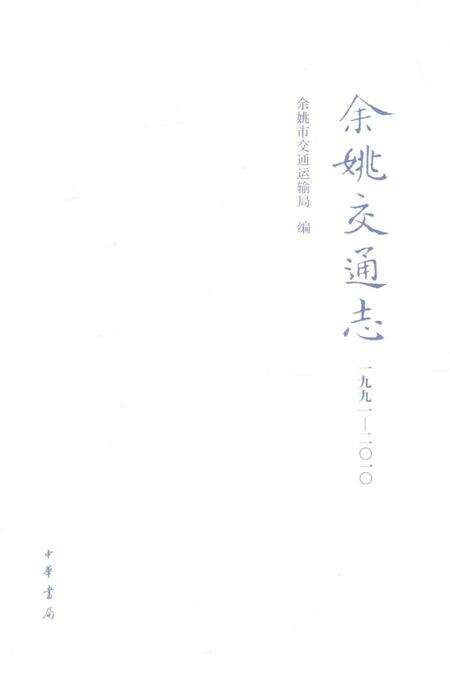 余姚交通志
一九九一—二〇一〇
余姚市交通运输局 编
中华书局